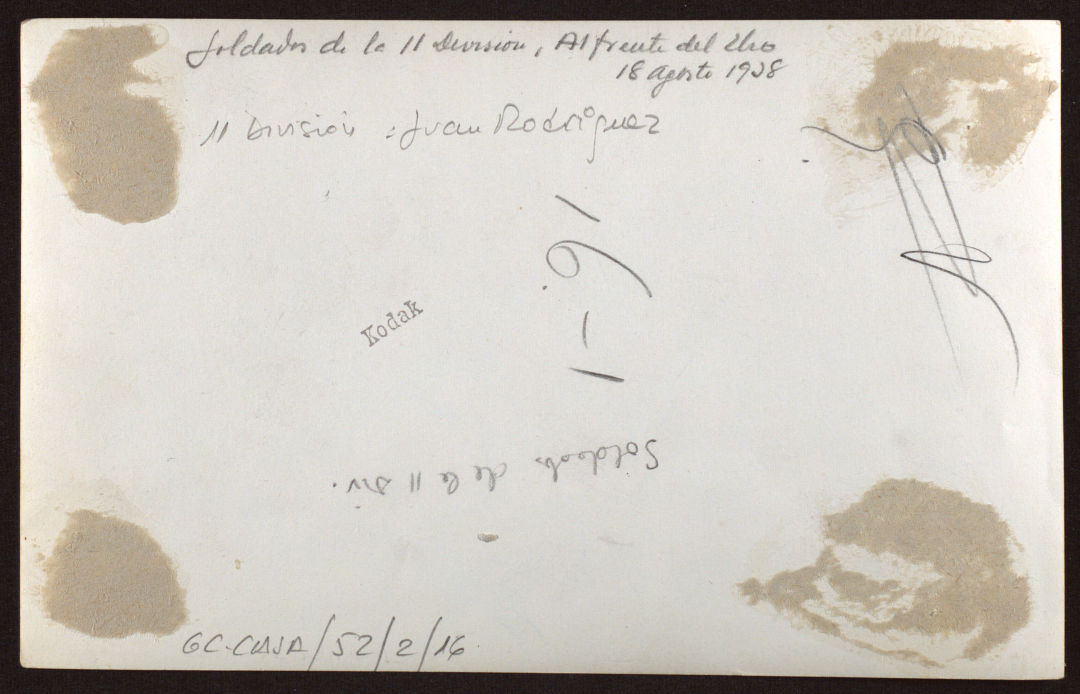 Soldados de la 11 Division, Al frente del Ebro
18 agosto 1938
11 División : Juan Rodríguez
1-91
Kodak
Soldados de la 11 Div.
GC-CAJA/52/2/16